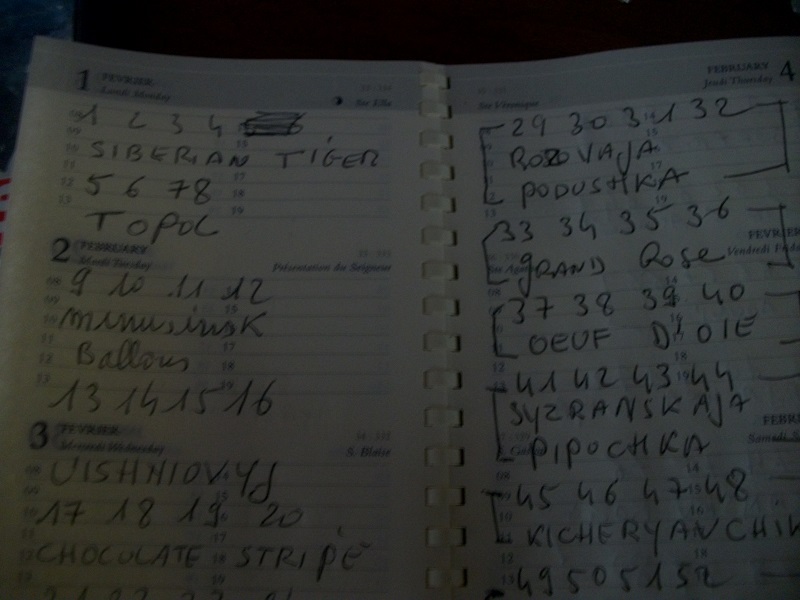 1 FEVRIER
Lundi Monday
Ste Ella
1 2 3 4
SIBERIAN TIGER
5 6 7 8
TOPOL
2 FEBRUARY
Mardi Tuesday
Présentation du Seigneur
9 10 11 12
minusinsk
Ballons
13 14 15 16
3 FEVRIER
Mercredi Wednesday
S. Blaise
VISHNIOVYJ
17 18 19 20
CHOCOLATE STRIPE
FEBRUARY 4
Jeudi Thursday
Ste Véronique
29 30 31 32
ROZOVAJA
PODUSHKA
33 34 35 36
FEVRIER
Vendredi
GRAND Rose
37 38 39 40
OEUF D'OIE
41 42 43 44
SYZRANSKAJA
PIPOCHKA
45 46 47 48
KICHERYANCHIK
49 50 51 52